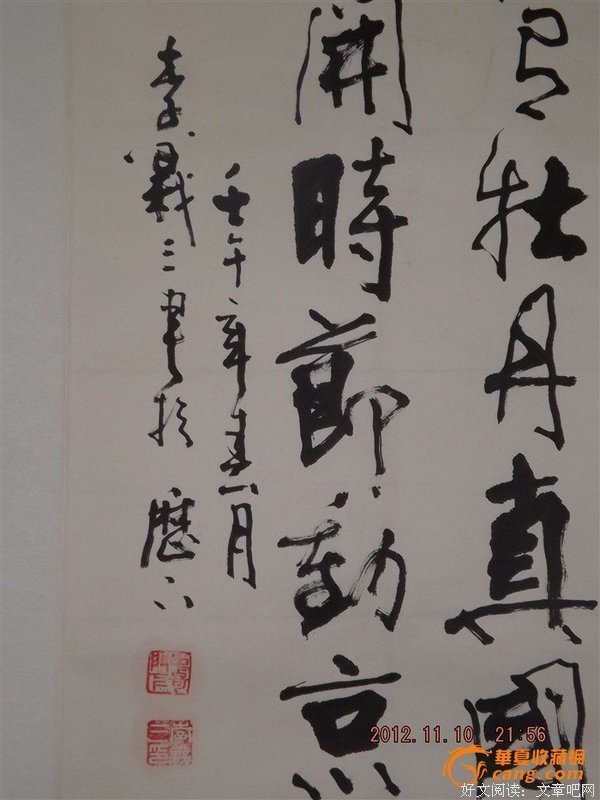 牡丹真國
開時節動京
壬午年春月
李義三書於歷下
2012.11.10 21:56
華夏收藏網
cang.com
好文阅读：文章吧网